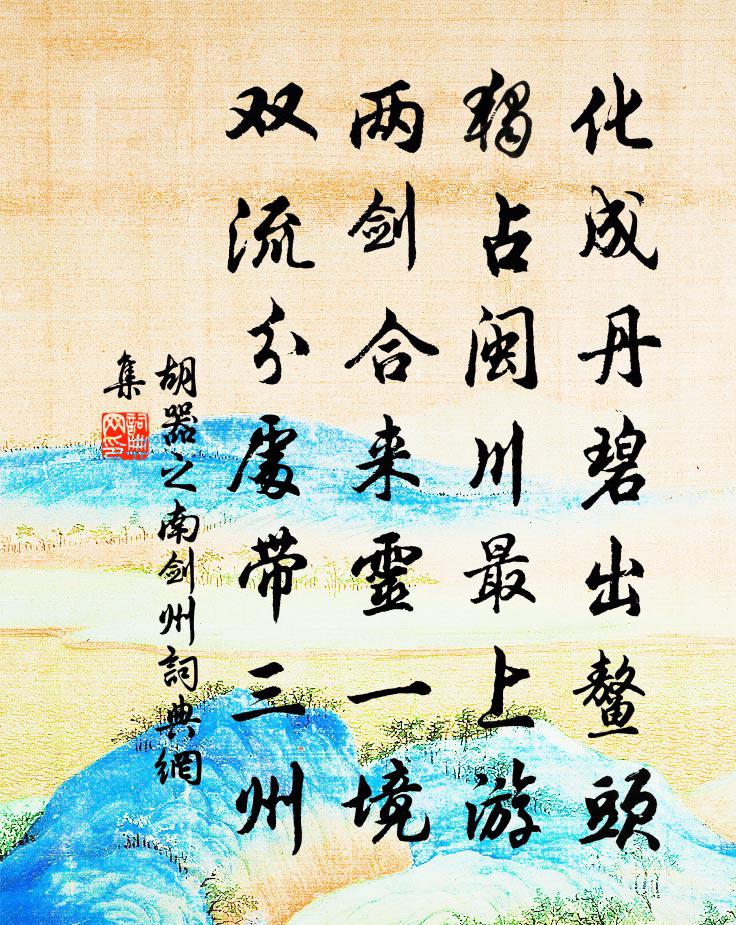 化成丹碧出鳌頭
独占闽川最上游
两剑合来靈一境
双流分處带三州
胡器之南剑州詞典網
集
詞典
网印